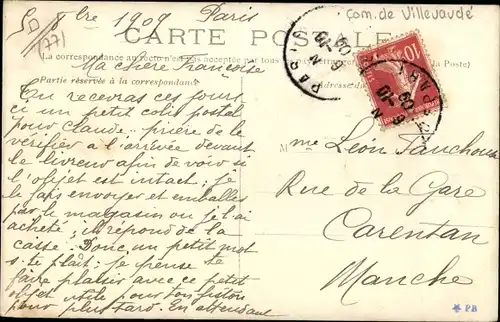 8bre 1909 Paris
com. de Villevaudé
(77)
CARTE POSTALE
La correspondance au recto n'est pas acceptée par
la Poste)
Ma chère Françoise
Partie réservée à la correspondance
Adresse du
Tu recevras ces jours
ci un petit colis postal
pour Claude, prière de le
vérifier à l'arrivée devant
le livreur afin de voir si
l'objet est intact; je
le fais envoyer et emballer
par le magasin où je l'ai
acheté; il répond de la
casse. Donc un petit mot
s. te plaît; je pense te
faire plaisir avec ce petit
objet utile pour ton fiston
pour plus tard. En attendant
PARIS
10
Mme Léon Fauchoux
Rue de la Gare
Carentan
Manche
PB